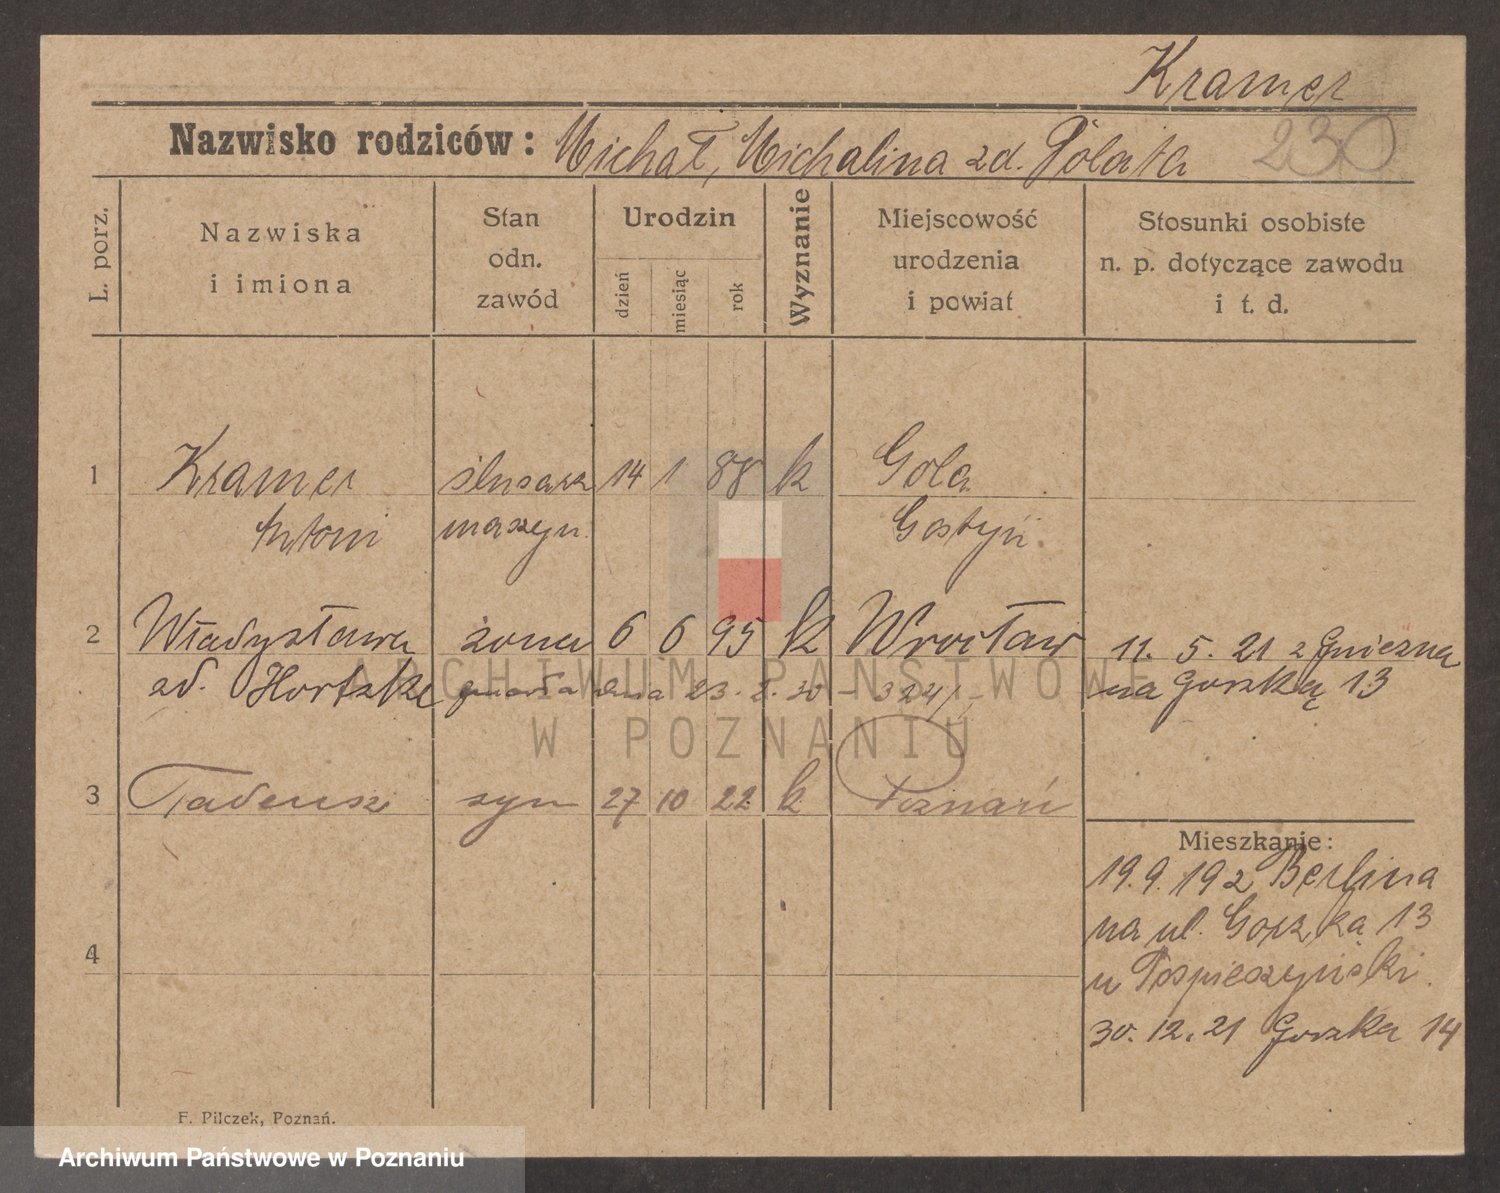 Kramer
Nazwisko rodziców: Michał, Michalina zd. Polata 230
L. porz.
Nazwiska i imiona
Stan odn. zawód
Urodzin
dzień
miesiąc
rok
Wyznanie
Miejscowość urodzenia i powiat
Stosunki osobiste n. p. dotyczące zawodu i t. d.
1 Kramer ślusarz 14 1 88 k Gola
Antoni maszyn. Gostyń
2 Władysława żona 6 6 95 k Wrocław 11. 5. 21 z Gniezna
zd. zmarła dnia 23. 2. 30 – 324/ na Gorzką 13
ARCHIWUM PAŃSTWOWE
W POZNANIU
3 Tadeusz syn 27 10 22 k Poznań
Mieszkanie:
19. 9. 19 z Berlina
na ul. Gorzka 13
u
4
30. 12. 21 Gorzka 14
F. Pilczek, Poznań.
Archiwum Państwowe w Poznaniu